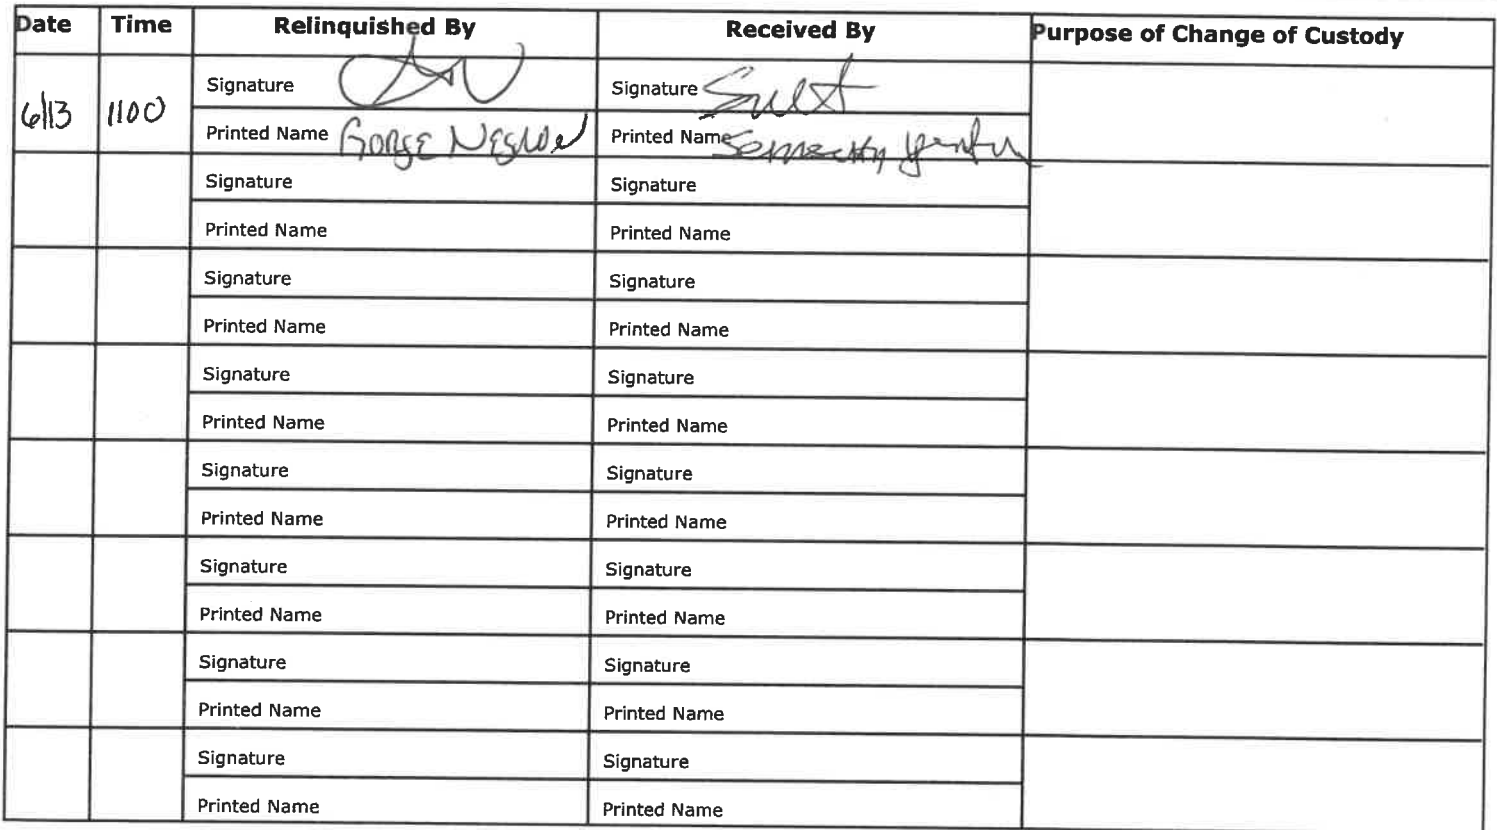 Date Time Relinquished By Received By Purpose of Change of Custody
Signature Signature
6/13 1100
Printed Name Printed Name
Signature Signature
Printed Name Printed Name
Signature Signature
Printed Name Printed Name
Signature Signature
Printed Name Printed Name
Signature Signature
Printed Name Printed Name
Signature Signature
Printed Name Printed Name
Signature Signature
Printed Name Printed Name
Signature Signature
Printed Name Printed Name